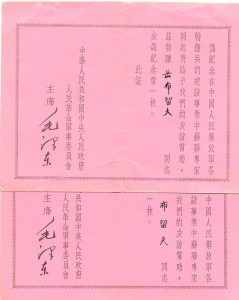 紀念在中國人民解放軍各
特種兵的建設事業中蘇聯專家
同志所給予我們的友誼幫助,
茲特贈 布留夫 同志
友誼紀念章一枚。
此証
中華人民共和國中央人民政府
人民革命軍事委員會
主席 毛澤東
中國人民解放軍各
設事業中蘇聯專家
我們的友誼幫助,
布留夫 同志
一枚。
共和國中央人民政府
人民革命軍事委員會
主席 毛澤東